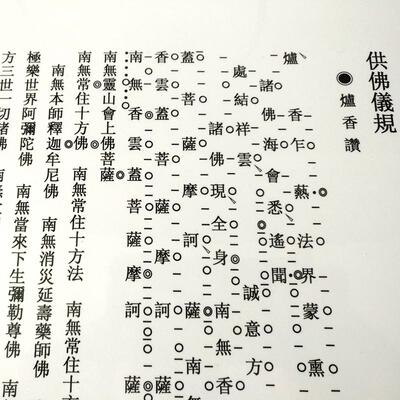 供佛儀規
爐香讚
爐香乍爇法界蒙熏
諸佛海會悉遙聞
處結祥雲誠意方
諸佛現全身南無香
蓋菩薩摩訶薩南
香雲蓋菩薩摩訶薩
南無香雲蓋菩薩摩訶薩
南無靈山會上佛菩薩
南無常住十方佛 南無常住十方法 南無常住十方
南無本師釋迦牟尼佛 南無消災延壽藥師佛
極樂世界阿彌陀佛 南無當來下生彌勒尊佛 南
方三世一切諸佛